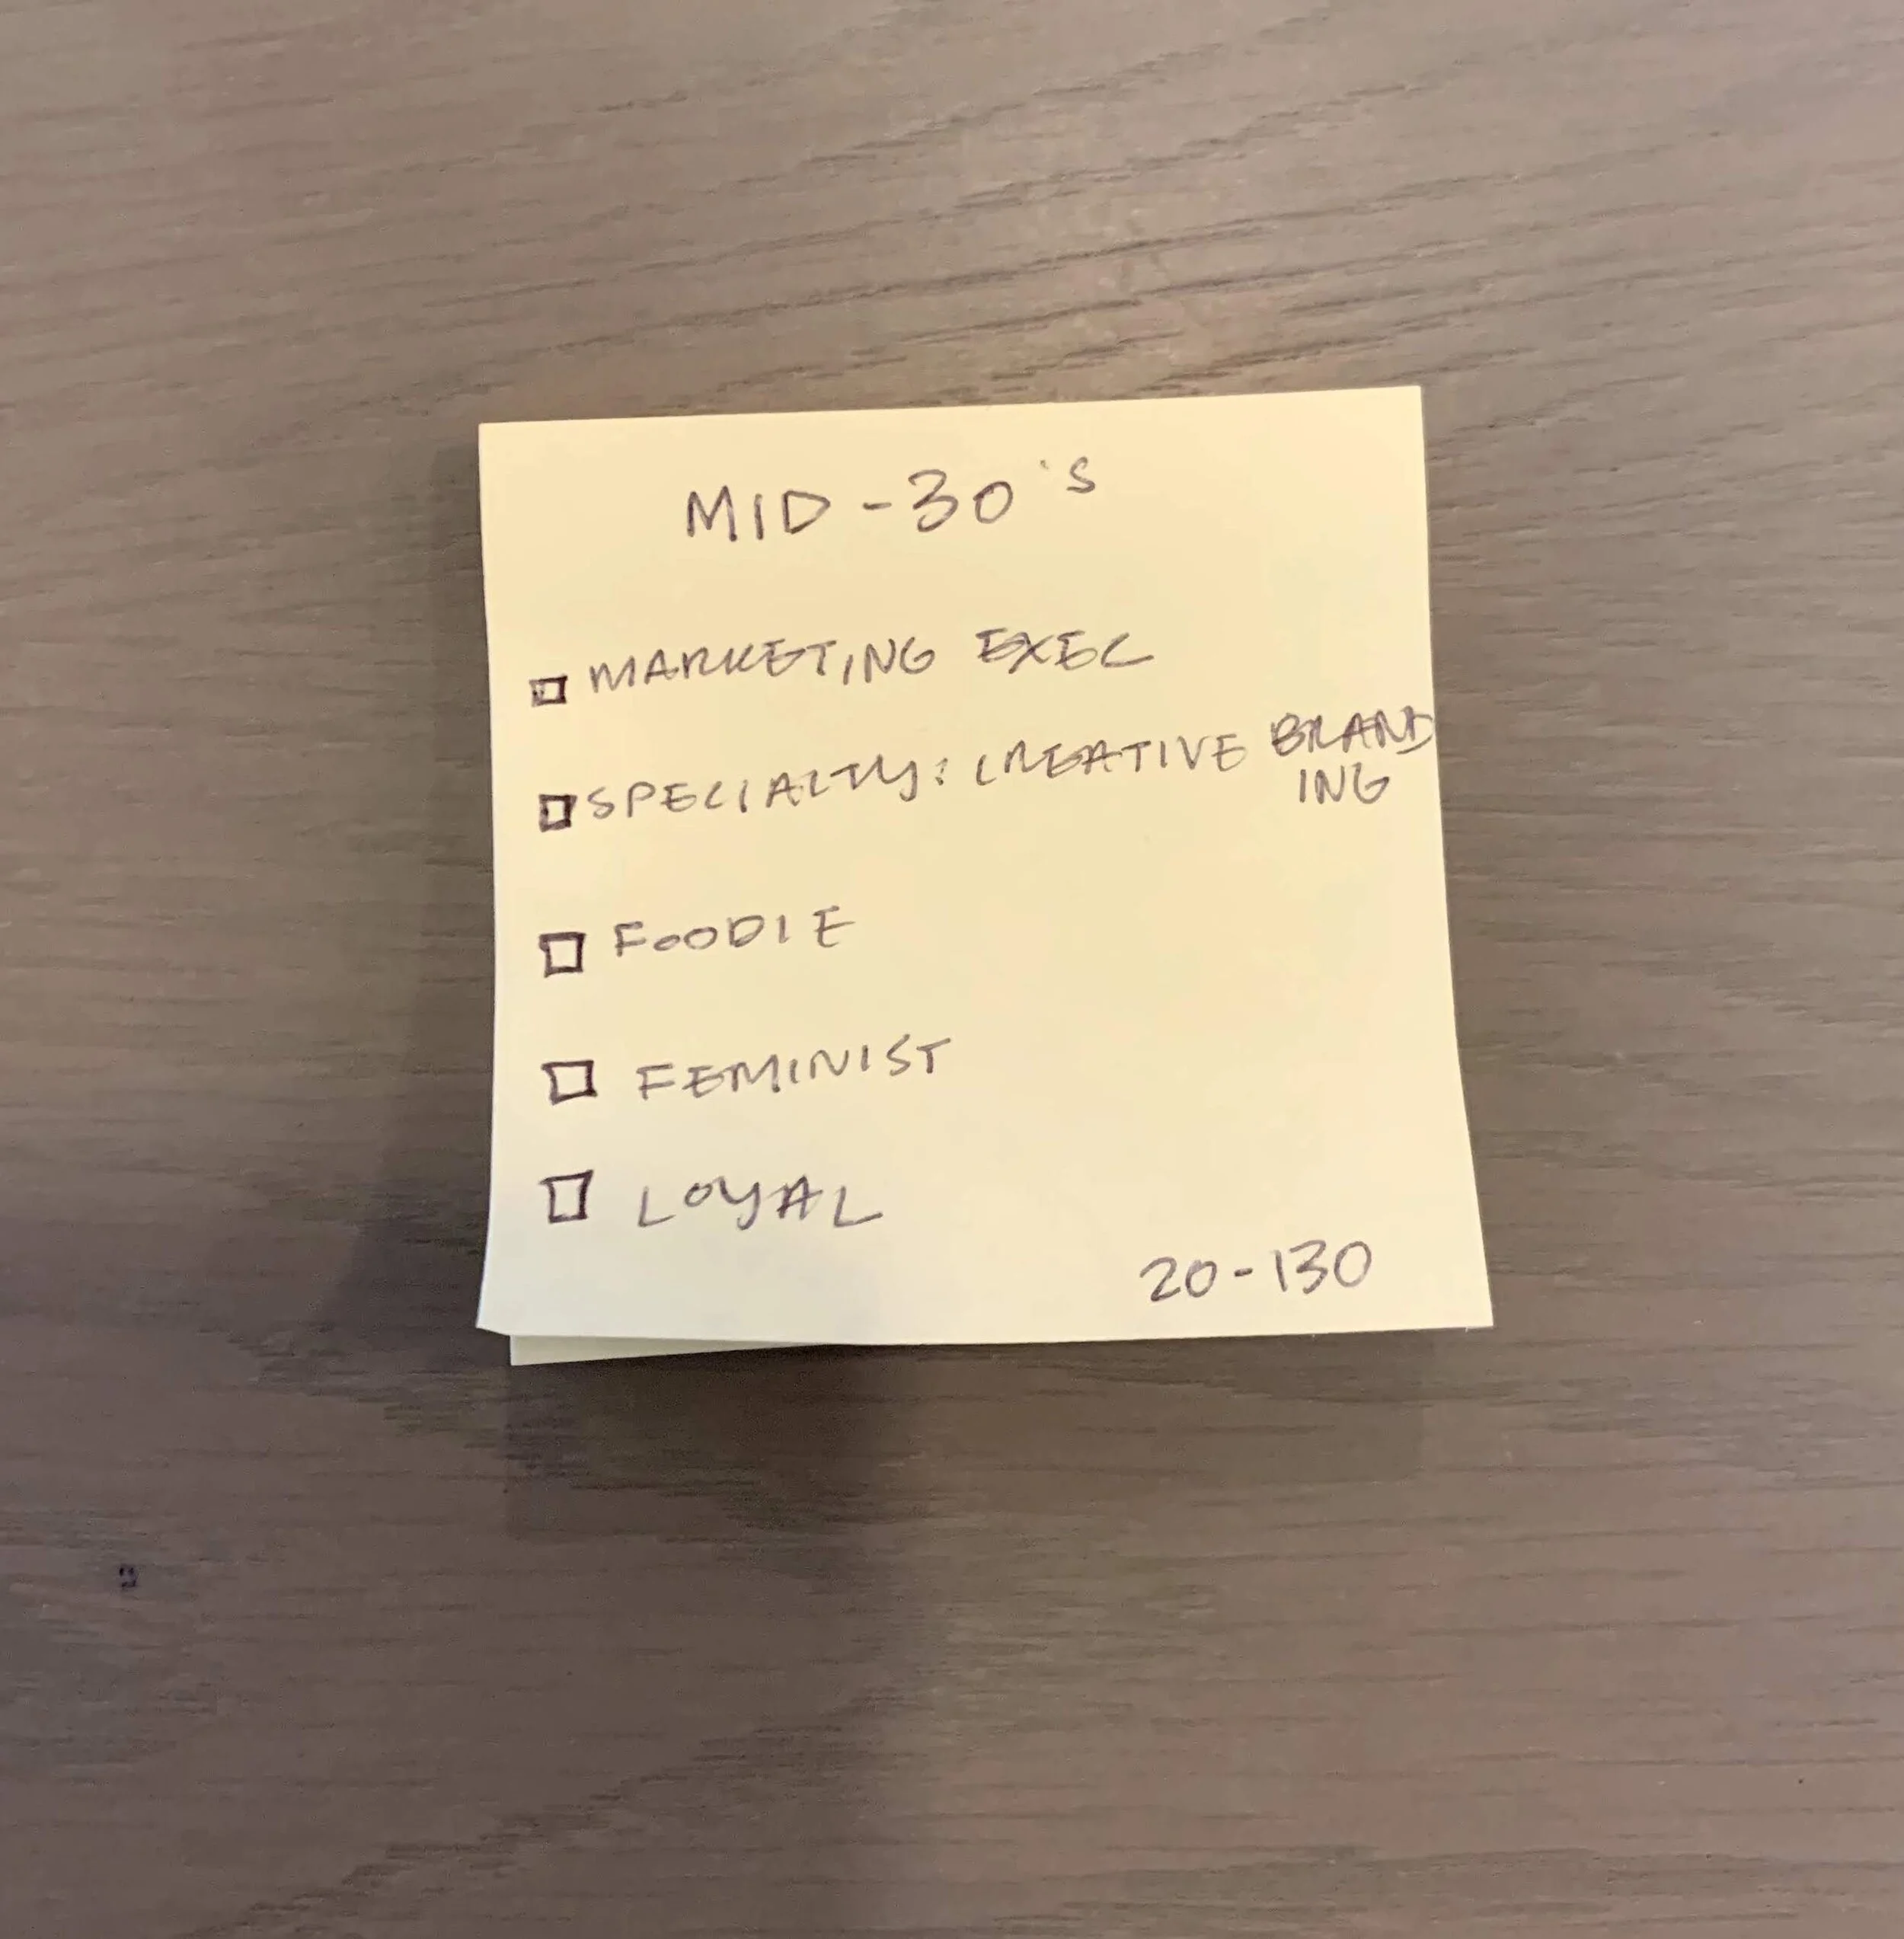 MID-30's
MARKETING EXEC
SPECIALTY: CREATIVE BRAND
ING
FOODIE
FEMINIST
LOYAL
20-130